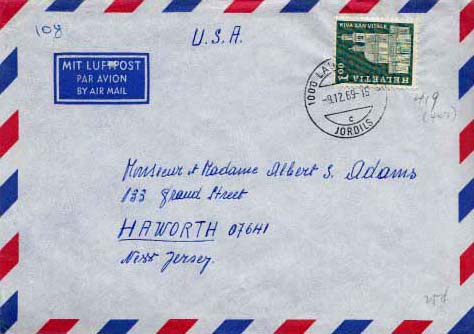 108
U.S.A.
MIT LUFTPOST
PAR AVION
BY AIR MAIL
RIVA SAN VITALE
1.00
HELVETIA
1000 LA
-9.12.69-15
C
JORDILS
419
Monsieur et Madame Albert S. Adams
133 Grand Street
HAWORTH 07641
New Jersey.